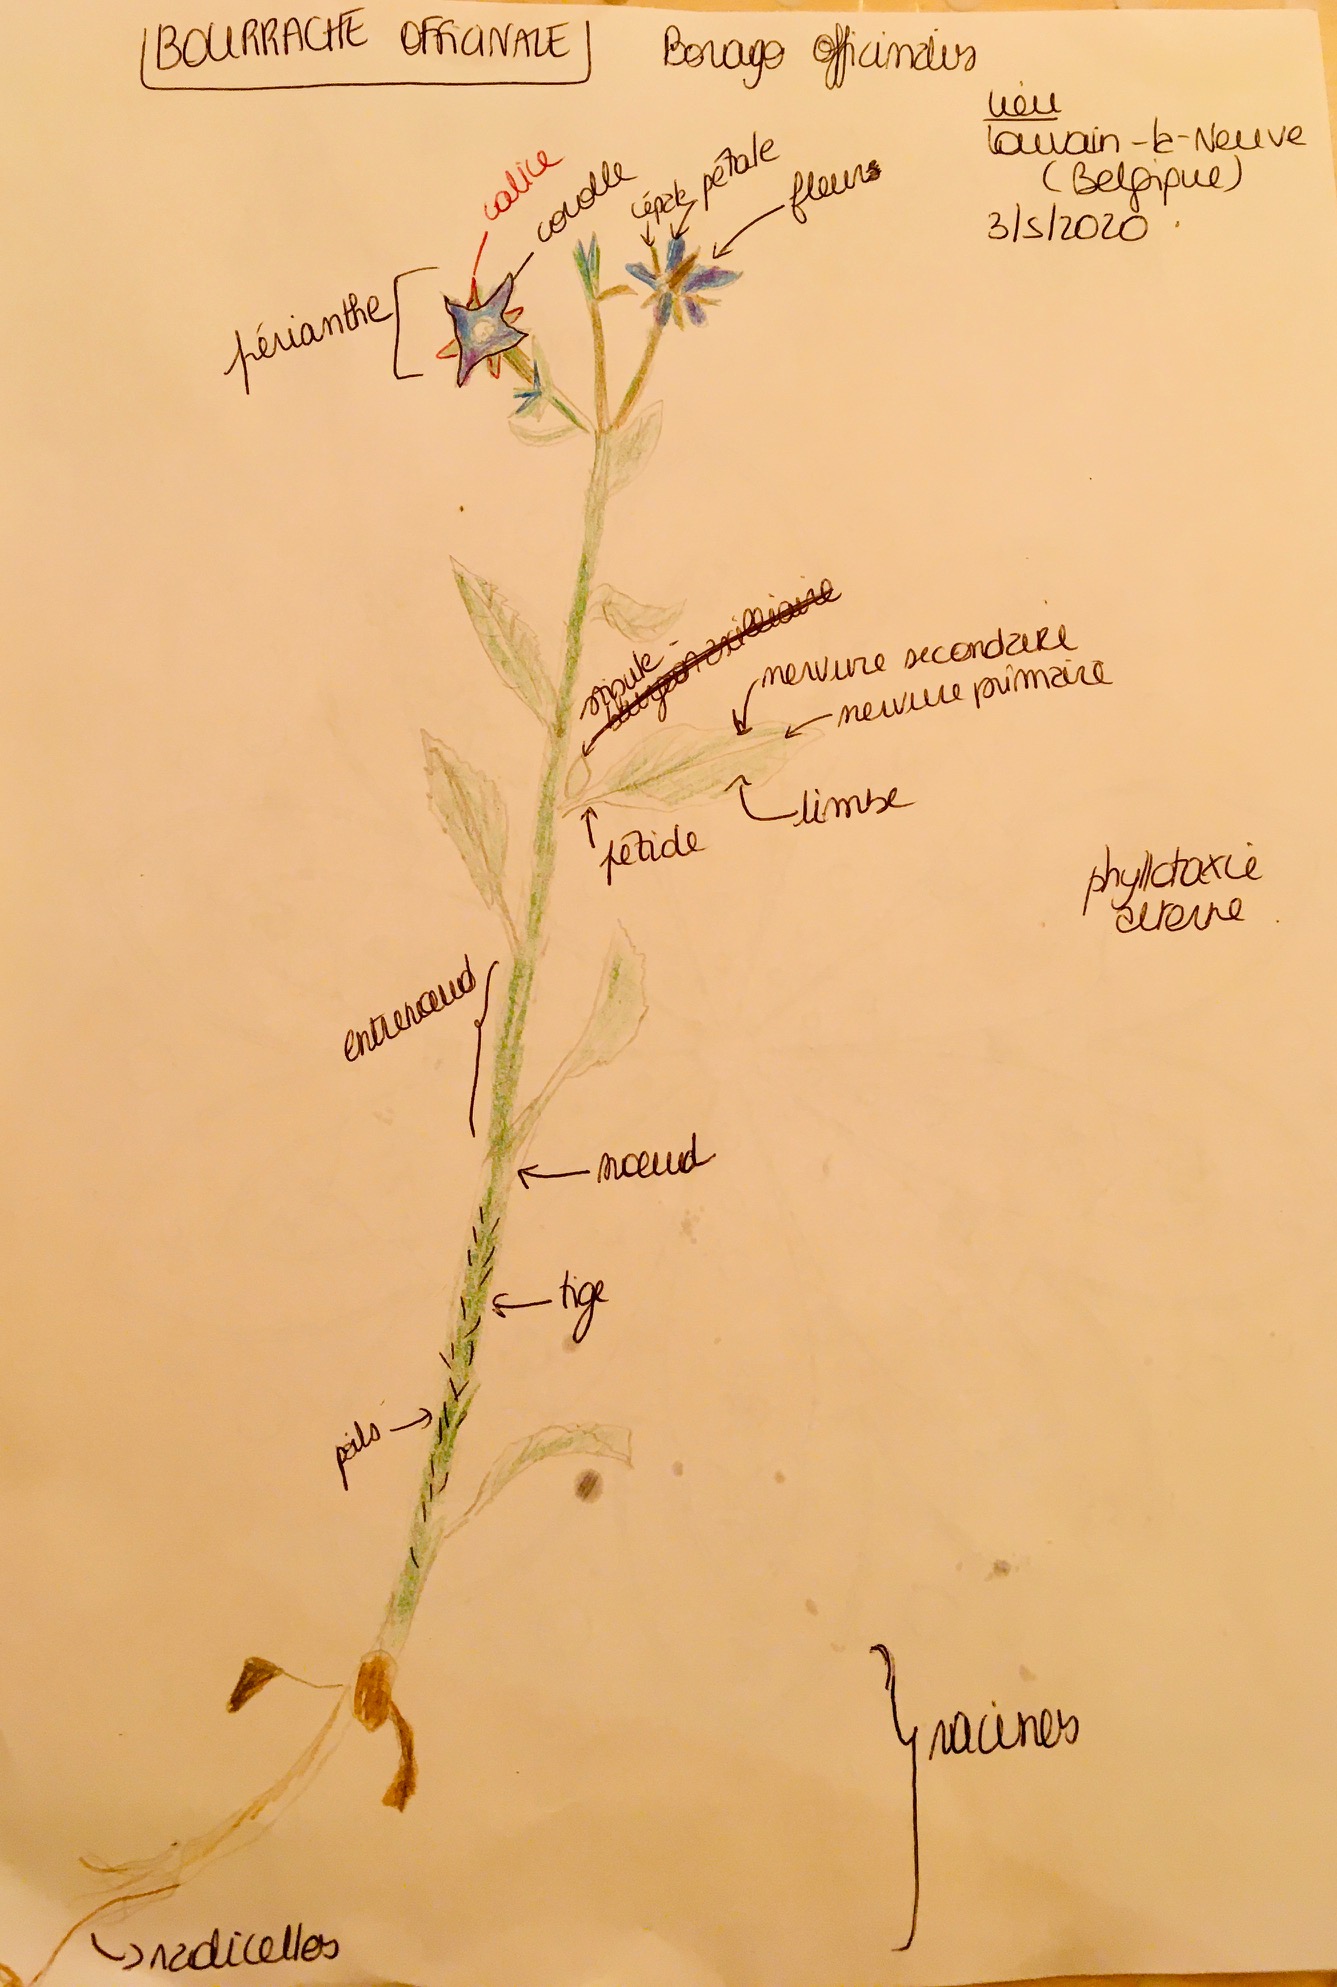 BOURRACHE OFFICINALE
Borago officinalis
Lieu
Louvain-la-Neuve
(Belgique)
3/5/2020
calice
corolle
cépale
pétale
fleurs
périanthe
stipule
bourgeon axilliaire
nervure secondaire
nervure primaire
limbe
pétiole
phyllotaxie
alterne
entrenœud
nœud
tige
poils
racines
radicelles